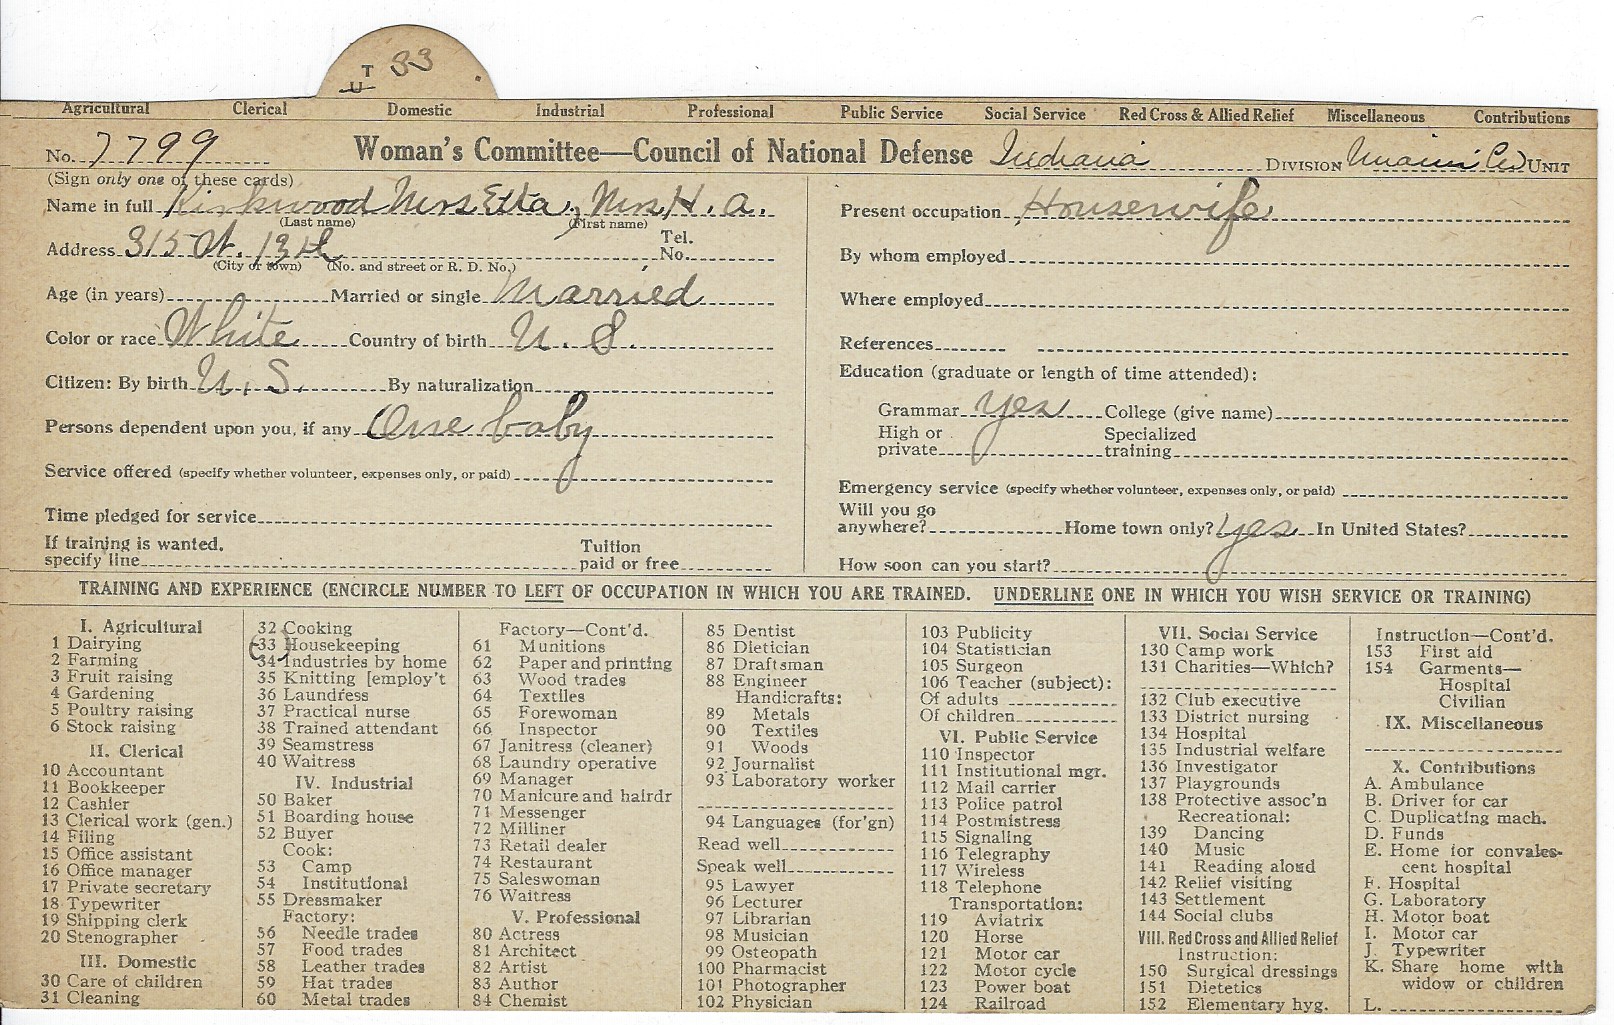 T 33
U
Agricultural Clerical Domestic Industrial Professional Public Service Social Service Red Cross & Allied Relief Miscellaneous Contributions
No. 7799 Woman's Committee—Council of National Defense Indiana DIVISION Miami Co UNIT
(Sign only one of these cards)
Name in full Kirkwood Mrs Etta, Mrs H. A.
(Last name) (First name)
Address 315 W. 13th Tel. No.
(City or town) (No. and street or R. D. No.)
Age (in years) Married or single Married
Color or race White Country of birth U. S.
Citizen: By birth U. S. By naturalization
Persons dependent upon you, if any One baby
Service offered (specify whether volunteer, expenses only, or paid)
Time pledged for service
If training is wanted, specify line Tuition paid or free
Present occupation Housewife
By whom employed
Where employed
References
Education (graduate or length of time attended):
Grammar yes College (give name)
High or private Specialized training
Emergency service (specify whether volunteer, expenses only, or paid)
Will you go anywhere? Home town only? yes In United States?
How soon can you start?
TRAINING AND EXPERIENCE (ENCIRCLE NUMBER TO LEFT OF OCCUPATION IN WHICH YOU ARE TRAINED. UNDERLINE ONE IN WHICH YOU WISH SERVICE OR TRAINING)
I. Agricultural
1 Dairying
2 Farming
3 Fruit raising
4 Gardening
5 Poultry raising
6 Stock raising
II. Clerical
10 Accountant
11 Bookkeeper
12 Cashier
13 Clerical work (gen.)
14 Filing
15 Office assistant
16 Office manager
17 Private secretary
18 Typewriter
19 Shipping clerk
20 Stenographer
III. Domestic
30 Care of children
31 Cleaning
32 Cooking
33 Housekeeping
34 Industries by home
35 Knitting [employ't
36 Laundress
37 Practical nurse
38 Trained attendant
39 Seamstress
40 Waitress
IV. Industrial
50 Baker
51 Boarding house
52 Buyer
Cook:
53 Camp
54 Institutional
55 Dressmaker
Factory:
56 Needle trades
57 Food trades
58 Leather trades
59 Hat trades
60 Metal trades
Factory—Cont'd.
61 Munitions
62 Paper and printing
63 Wood trades
64 Textiles
65 Forewoman
66 Inspector
67 Janitress (cleaner)
68 Laundry operative
69 Manager
70 Manicure and hairdr
71 Messenger
72 Milliner
73 Retail dealer
74 Restaurant
75 Saleswoman
76 Waitress
V. Professional
80 Actress
81 Architect
82 Artist
83 Author
84 Chemist
85 Dentist
86 Dietician
87 Draftsman
88 Engineer
Handicrafts:
89 Metals
90 Textiles
91 Woods
92 Journalist
93 Laboratory worker
94 Languages (for'gn)
Read well
Speak well
95 Lawyer
96 Lecturer
97 Librarian
98 Musician
99 Osteopath
100 Pharmacist
101 Photographer
102 Physician
103 Publicity
104 Statistician
105 Surgeon
106 Teacher (subject):
Of adults
Of children
VI. Public Service
110 Inspector
111 Institutional mgr.
112 Mail carrier
113 Police patrol
114 Postmistress
115 Signaling
116 Telegraphy
117 Wireless
118 Telephone
Transportation:
119 Aviatrix
120 Horse
121 Motor car
122 Motor cycle
123 Power boat
124 Railroad
VII. Social Service
130 Camp work
131 Charities—Which?
132 Club executive
133 District nursing
134 Hospital
135 Industrial welfare
136 Investigator
137 Playgrounds
138 Protective assoc'n
Recreational:
139 Dancing
140 Music
141 Reading aloud
142 Relief visiting
143 Settlement
144 Social clubs
VIII. Red Cross and Allied Relief
Instruction:
150 Surgical dressings
151 Dietetics
152 Elementary hyg.
Instruction—Cont'd.
153 First aid
154 Garments—
Hospital
Civilian
IX. Miscellaneous
X. Contributions
A. Ambulance
B. Driver for car
C. Duplicating mach.
D. Funds
E. Home for convales-
cent hospital
F. Hospital
G. Laboratory
H. Motor boat
I. Motor car
J. Typewriter
K. Share home with
widow or children
L.